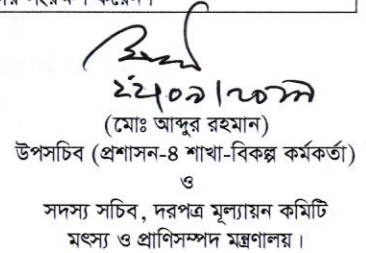 (মোঃ আব্দুর রহমান)
উপসচিব (প্রশাসন-৪ শাখা-বিকল্প কর্মকর্তা)
ও
সদস্য সচিব, দরপত্র মূল্যায়ন কমিটি
মৎস্য ও প্রাণিসম্পদ মন্ত্রণালয়।